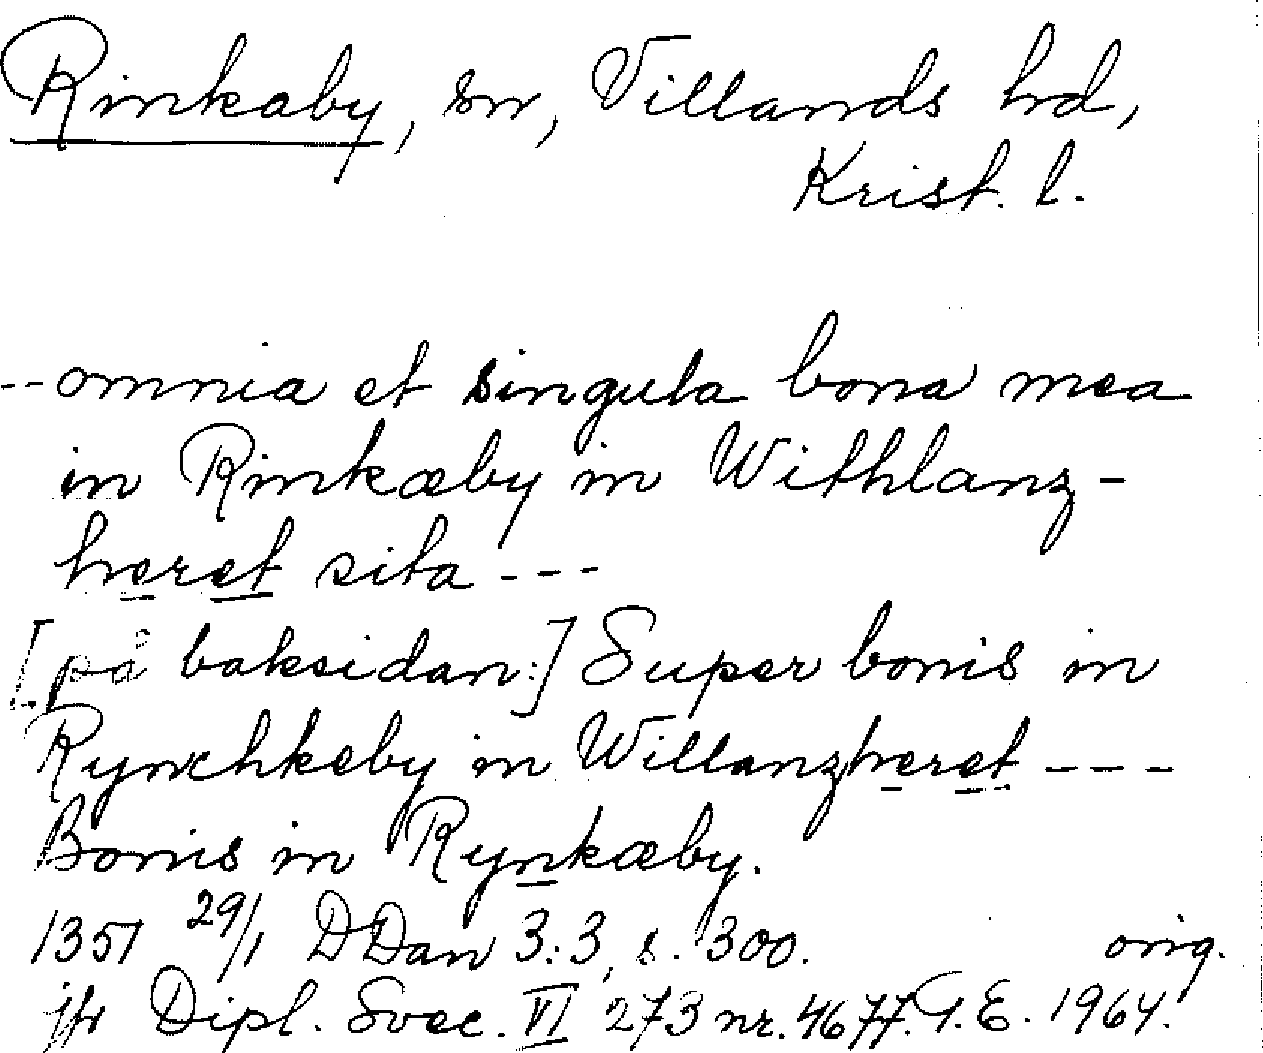 Rinkaby, sn, Villands hd,
Krist. l.
-- omnia et singula bona mea
in Rinkæby in Withlanz-
heret sita ---
[på baksidan:] Super bonis in
Rynchkeby in Willanzheret ---
Bonis in Rynkæby.
1351 29/1 DDan 3:3, s. 300. orig.
jfr Dipl. Svec. VI 273 nr. 4677. G.E. 1964.